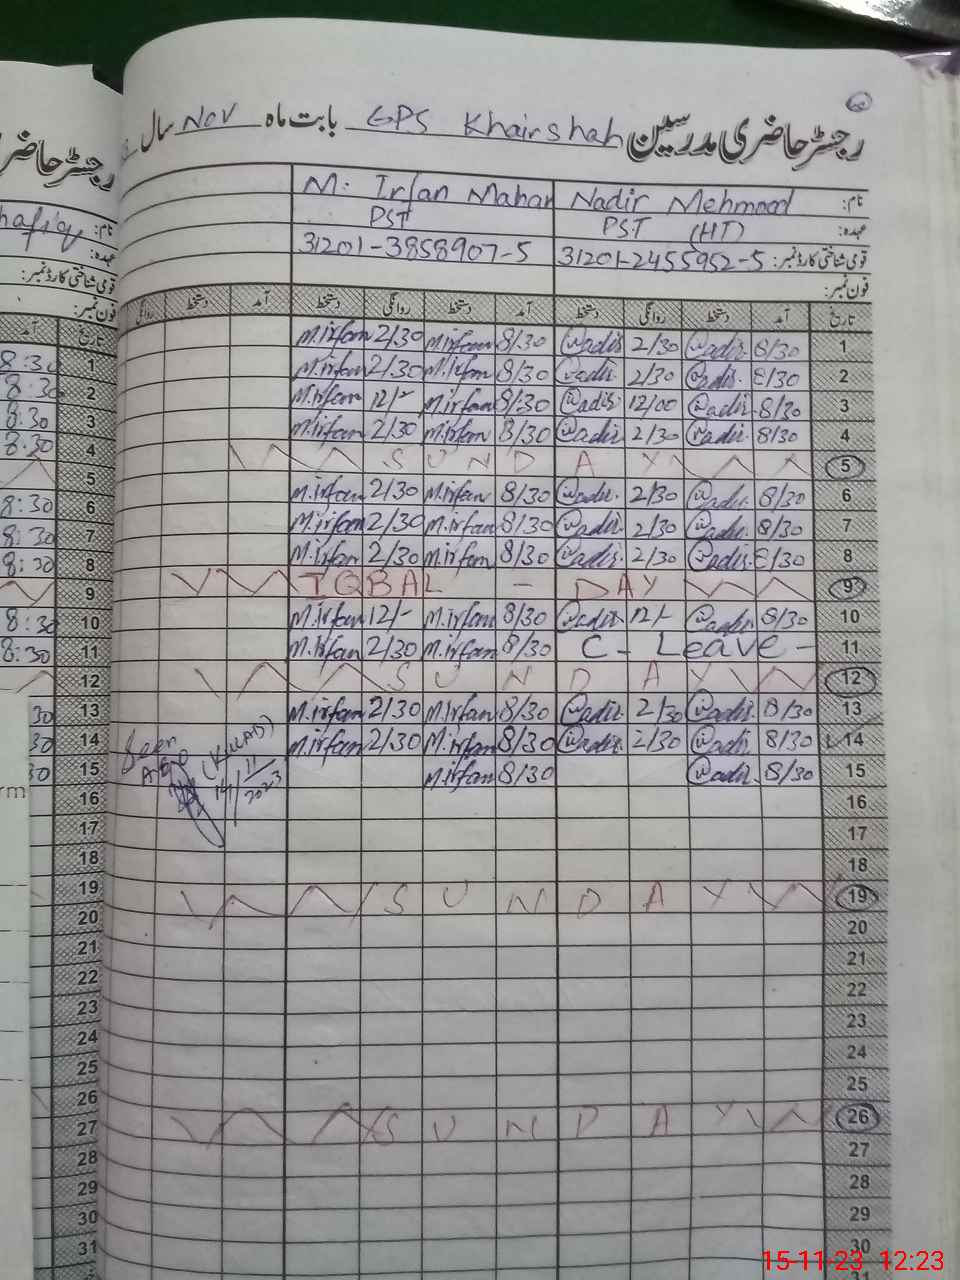 رجسٹر حاضری مدرسین GPS Khairshah بابت ماہ Nov سال
نام: Nadir Mehmood M. Irfan Mahar
عہدہ: PST (HT) PST
قومی شناختی کارڈ نمبر: 31201-2455952-5 31201-3858907-5
فون نمبر:
تاریخ آمد دستخط روانگی دستخط آمد دستخط روانگی دستخط آمد دستخط روانگی
1 8/30 Nadir 2/30 Nadir 8/30 M.irfan 2/30 M.irfan
2 8/30 Nadir 2/30 Nadir 8/30 M.irfan 2/30 M.irfan
3 8/30 Nadir 12/00 Nadir 8/30 M.irfan 12/- M.irfan
4 8/30 Nadir 2/30 Nadir 8/30 M.irfan 2/30 M.irfan
5 SUNDAY
6 8/30 Nadir 2/30 Nadir 8/30 M.irfan 2/30 M.irfan
7 8/30 Nadir 2/30 Nadir 8/30 M.irfan 2/30 M.irfan
8 8/30 Nadir 2/30 Nadir 8/30 M.irfan 2/30 M.irfan
9 IQBAL - DAY
10 8/30 Nadir 12/- Nadir 8/30 M.irfan 12/- M.irfan
11 C - Leave - 8/30 M.irfan 2/30 M.irfan
12 SUNDAY
13 8/30 Nadir 2/30 Nadir 8/30 M.irfan 2/30 M.irfan
14 8/30 Nadir 2/30 Nadir 8/30 M.irfan 2/30 M.irfan
15 8/30 Nadir 8/30 M.irfan
Seen
14/11/2023
16
17
18
19 SUNDAY
20
21
22
23
24
25
26 SUNDAY
27
28
29
30
31
رجسٹر حاضر
نام:
عہدہ:
قومی شناختی کارڈ نمبر:
فون نمبر:
تاریخ آمد
1 8:30
2 8:30
3 8:30
4 8:30
5
6 8:30
7 8:30
8 8:30
9
10 8:30
11 8:30
12
13 30
14 30
15 30
16
17
18
19
20
21
22
23
24
25
26
27
28
29
30
31
15-11-23 12:23